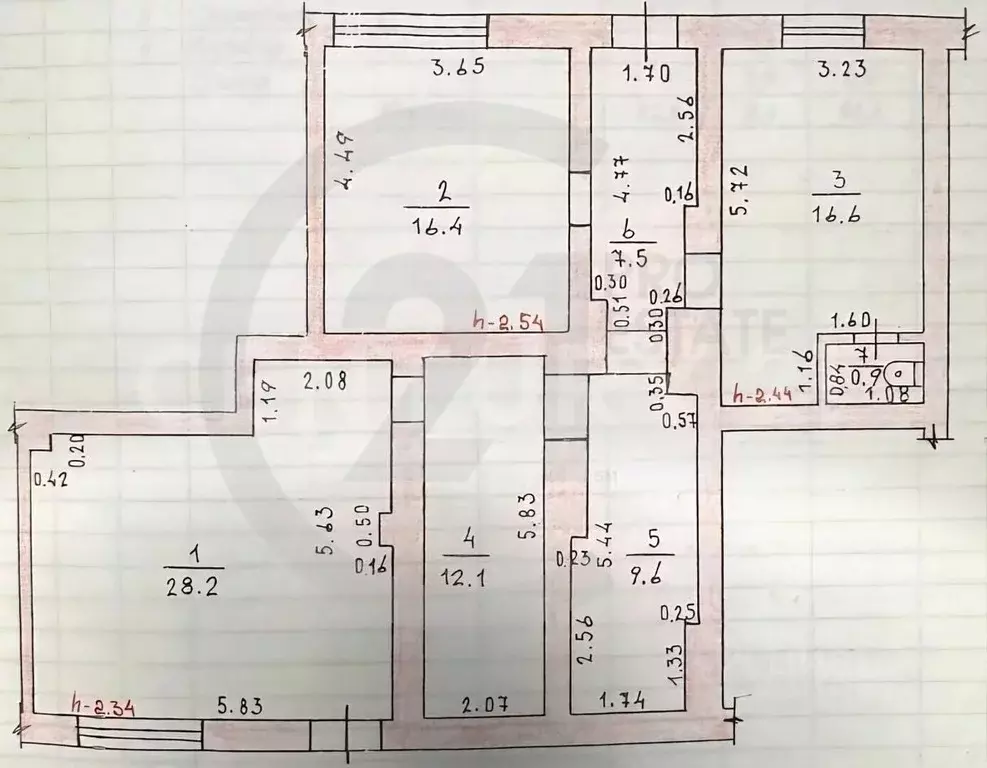 3.65
1.70
3.23
4.49
2.56
2
16.4
4.77
0.16
5.72
3
16.6
6
7.5
0.30
0.51
0.26
0.30
h-2.54
1.60
7
0.9
0.84
1.08
1.16
h-2.44
2.08
1.19
0.35
0.57
0.20
0.42
5.63
0.50
0.16
1
28.2
5.83
4
12.1
0.23
5.44
5
9.6
0.25
2.56
1.33
h-2.34
5.83
2.07
1.74
21
PRO
ESTATE